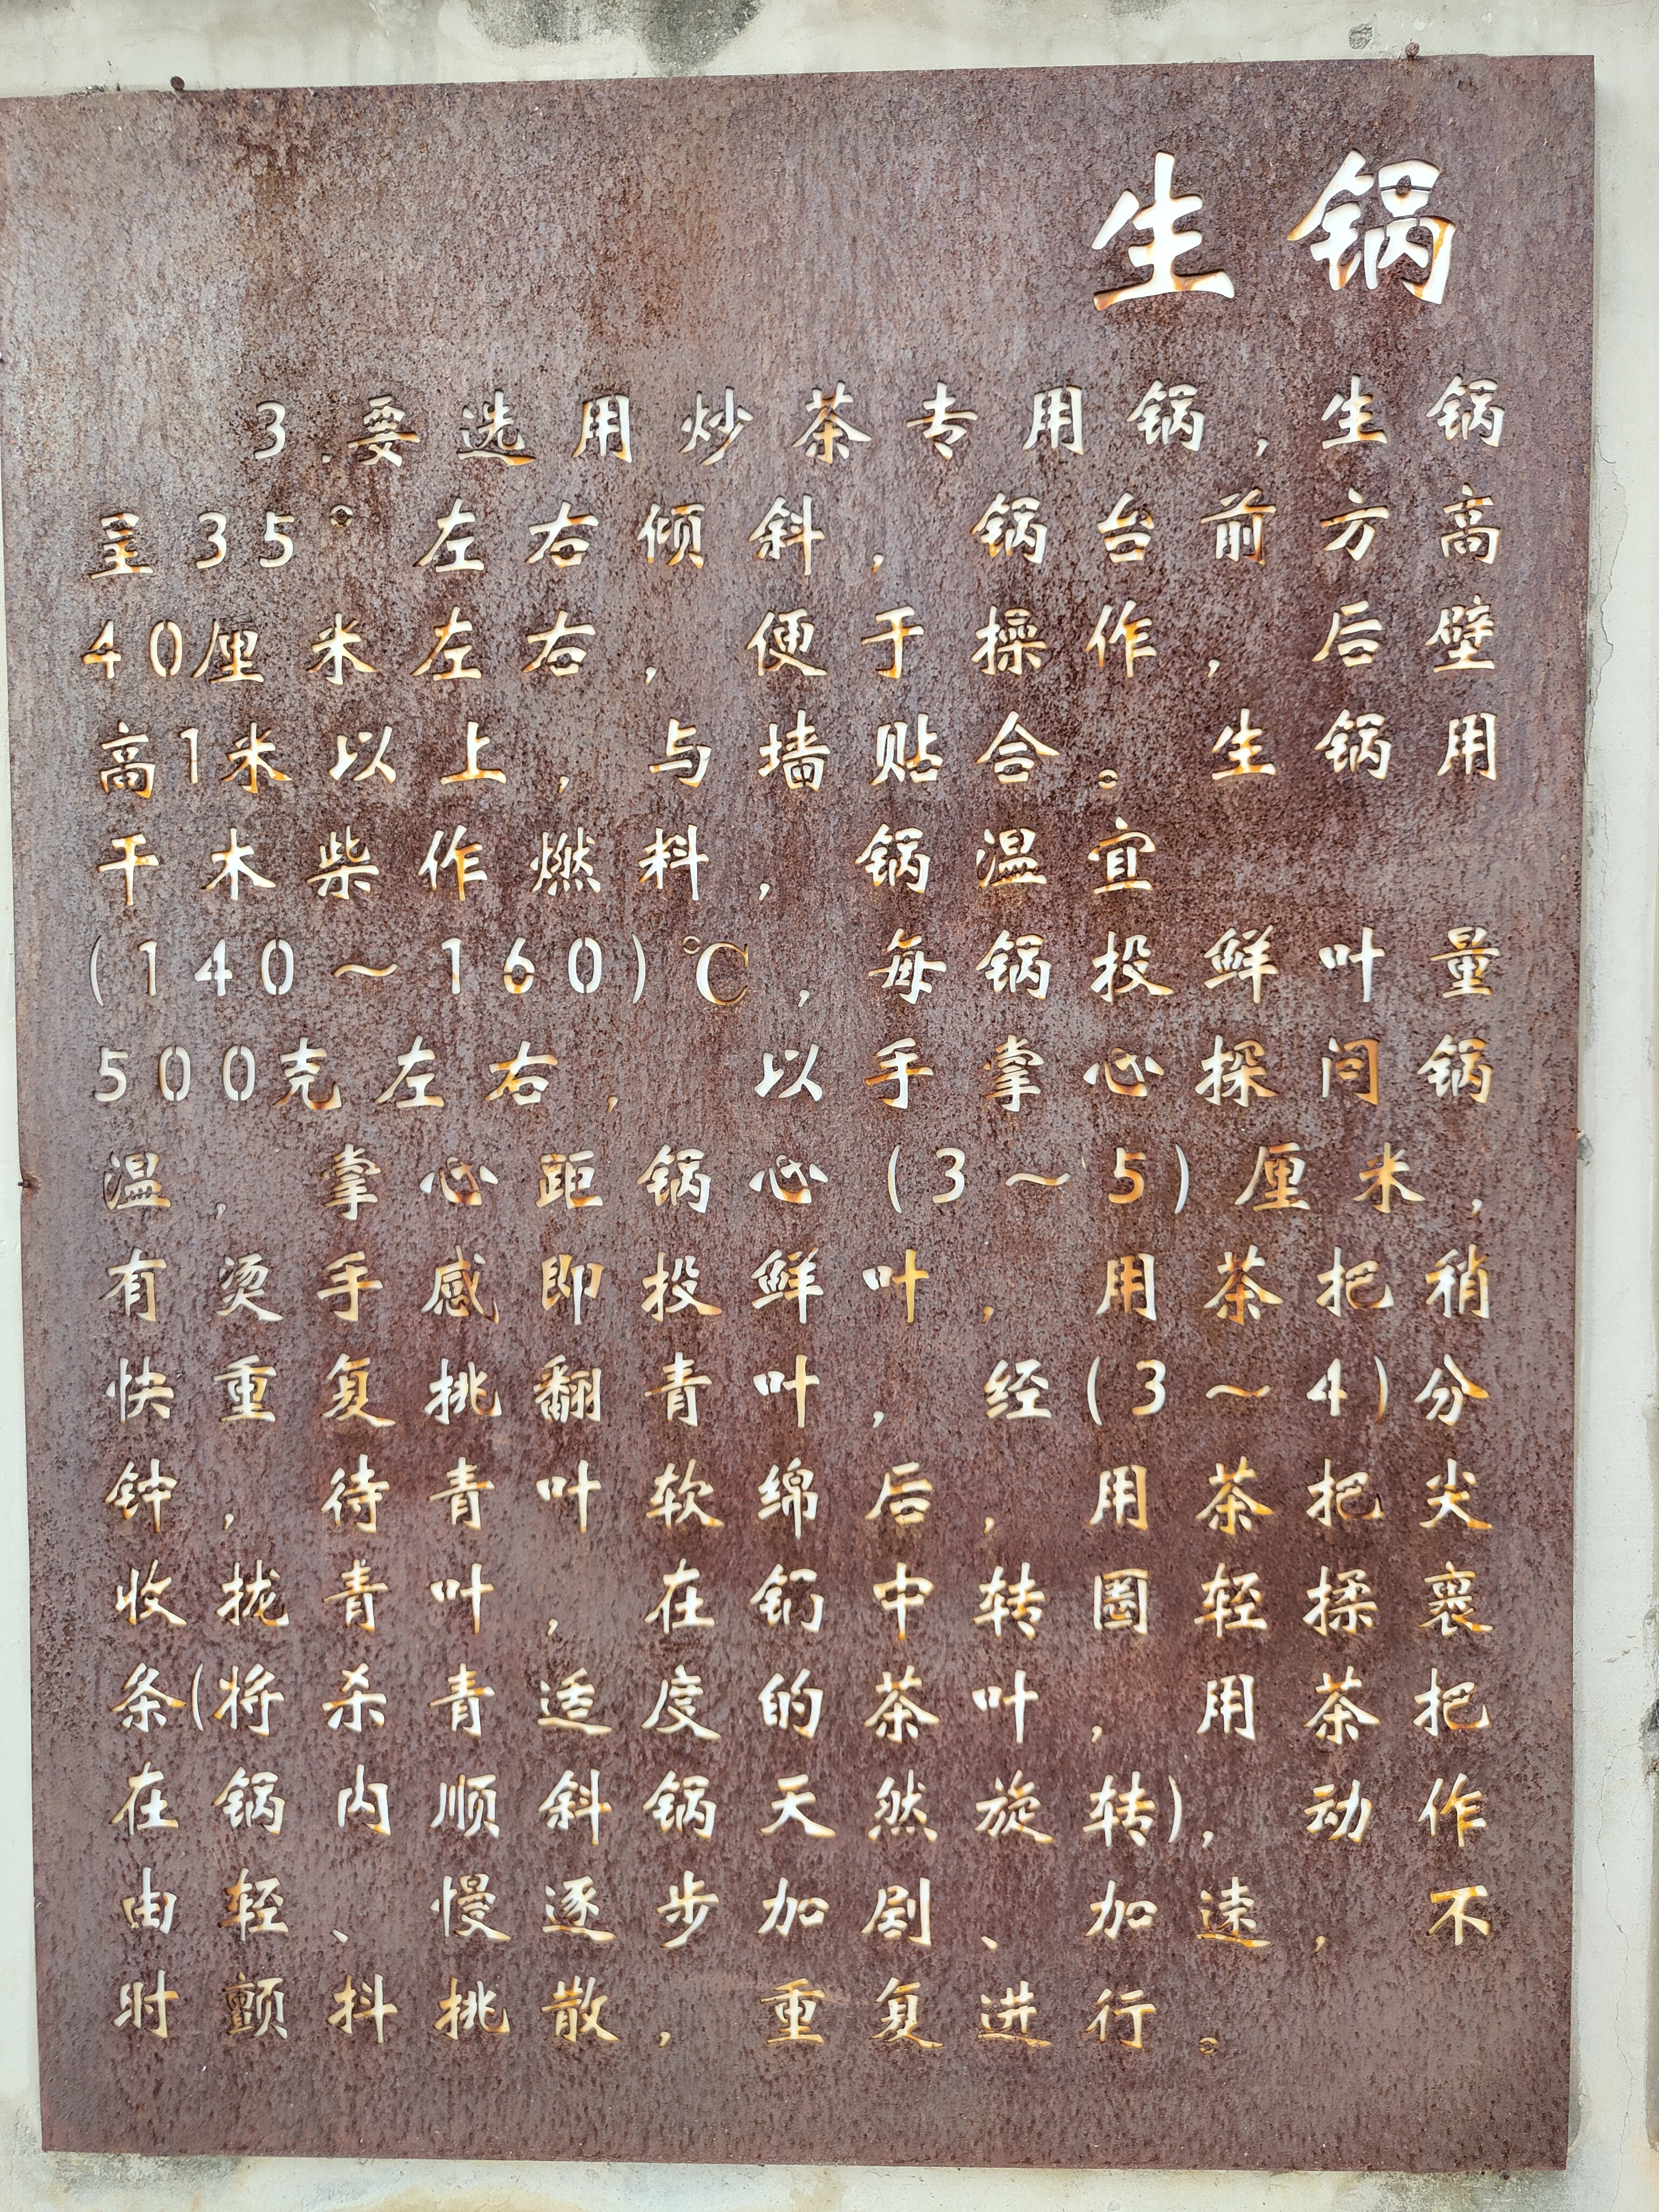 生锅
3.要选用炒茶专用锅,生锅
呈35°左右倾斜,锅台前方高
40厘米左右,便于操作,后壁
高1米以上,与墙贴合。生锅用
干木柴作燃料,锅温宜
(140～160)℃,每锅投鲜叶量
500克左右,以手掌心探问锅
温,掌心距锅心(3～5)厘米,
有烫手感即投鲜叶,用茶把稍
快重复挑翻青叶,经(3～4)分
钟,待青叶软绵后,用茶把尖
收拢青叶,在锅中转圈轻揉裹
条(将杀青适度的茶叶,用茶把
在锅内顺斜锅天然旋转),动作
由轻、慢逐步加剧、加速,不
时颤抖挑散,重复进行。